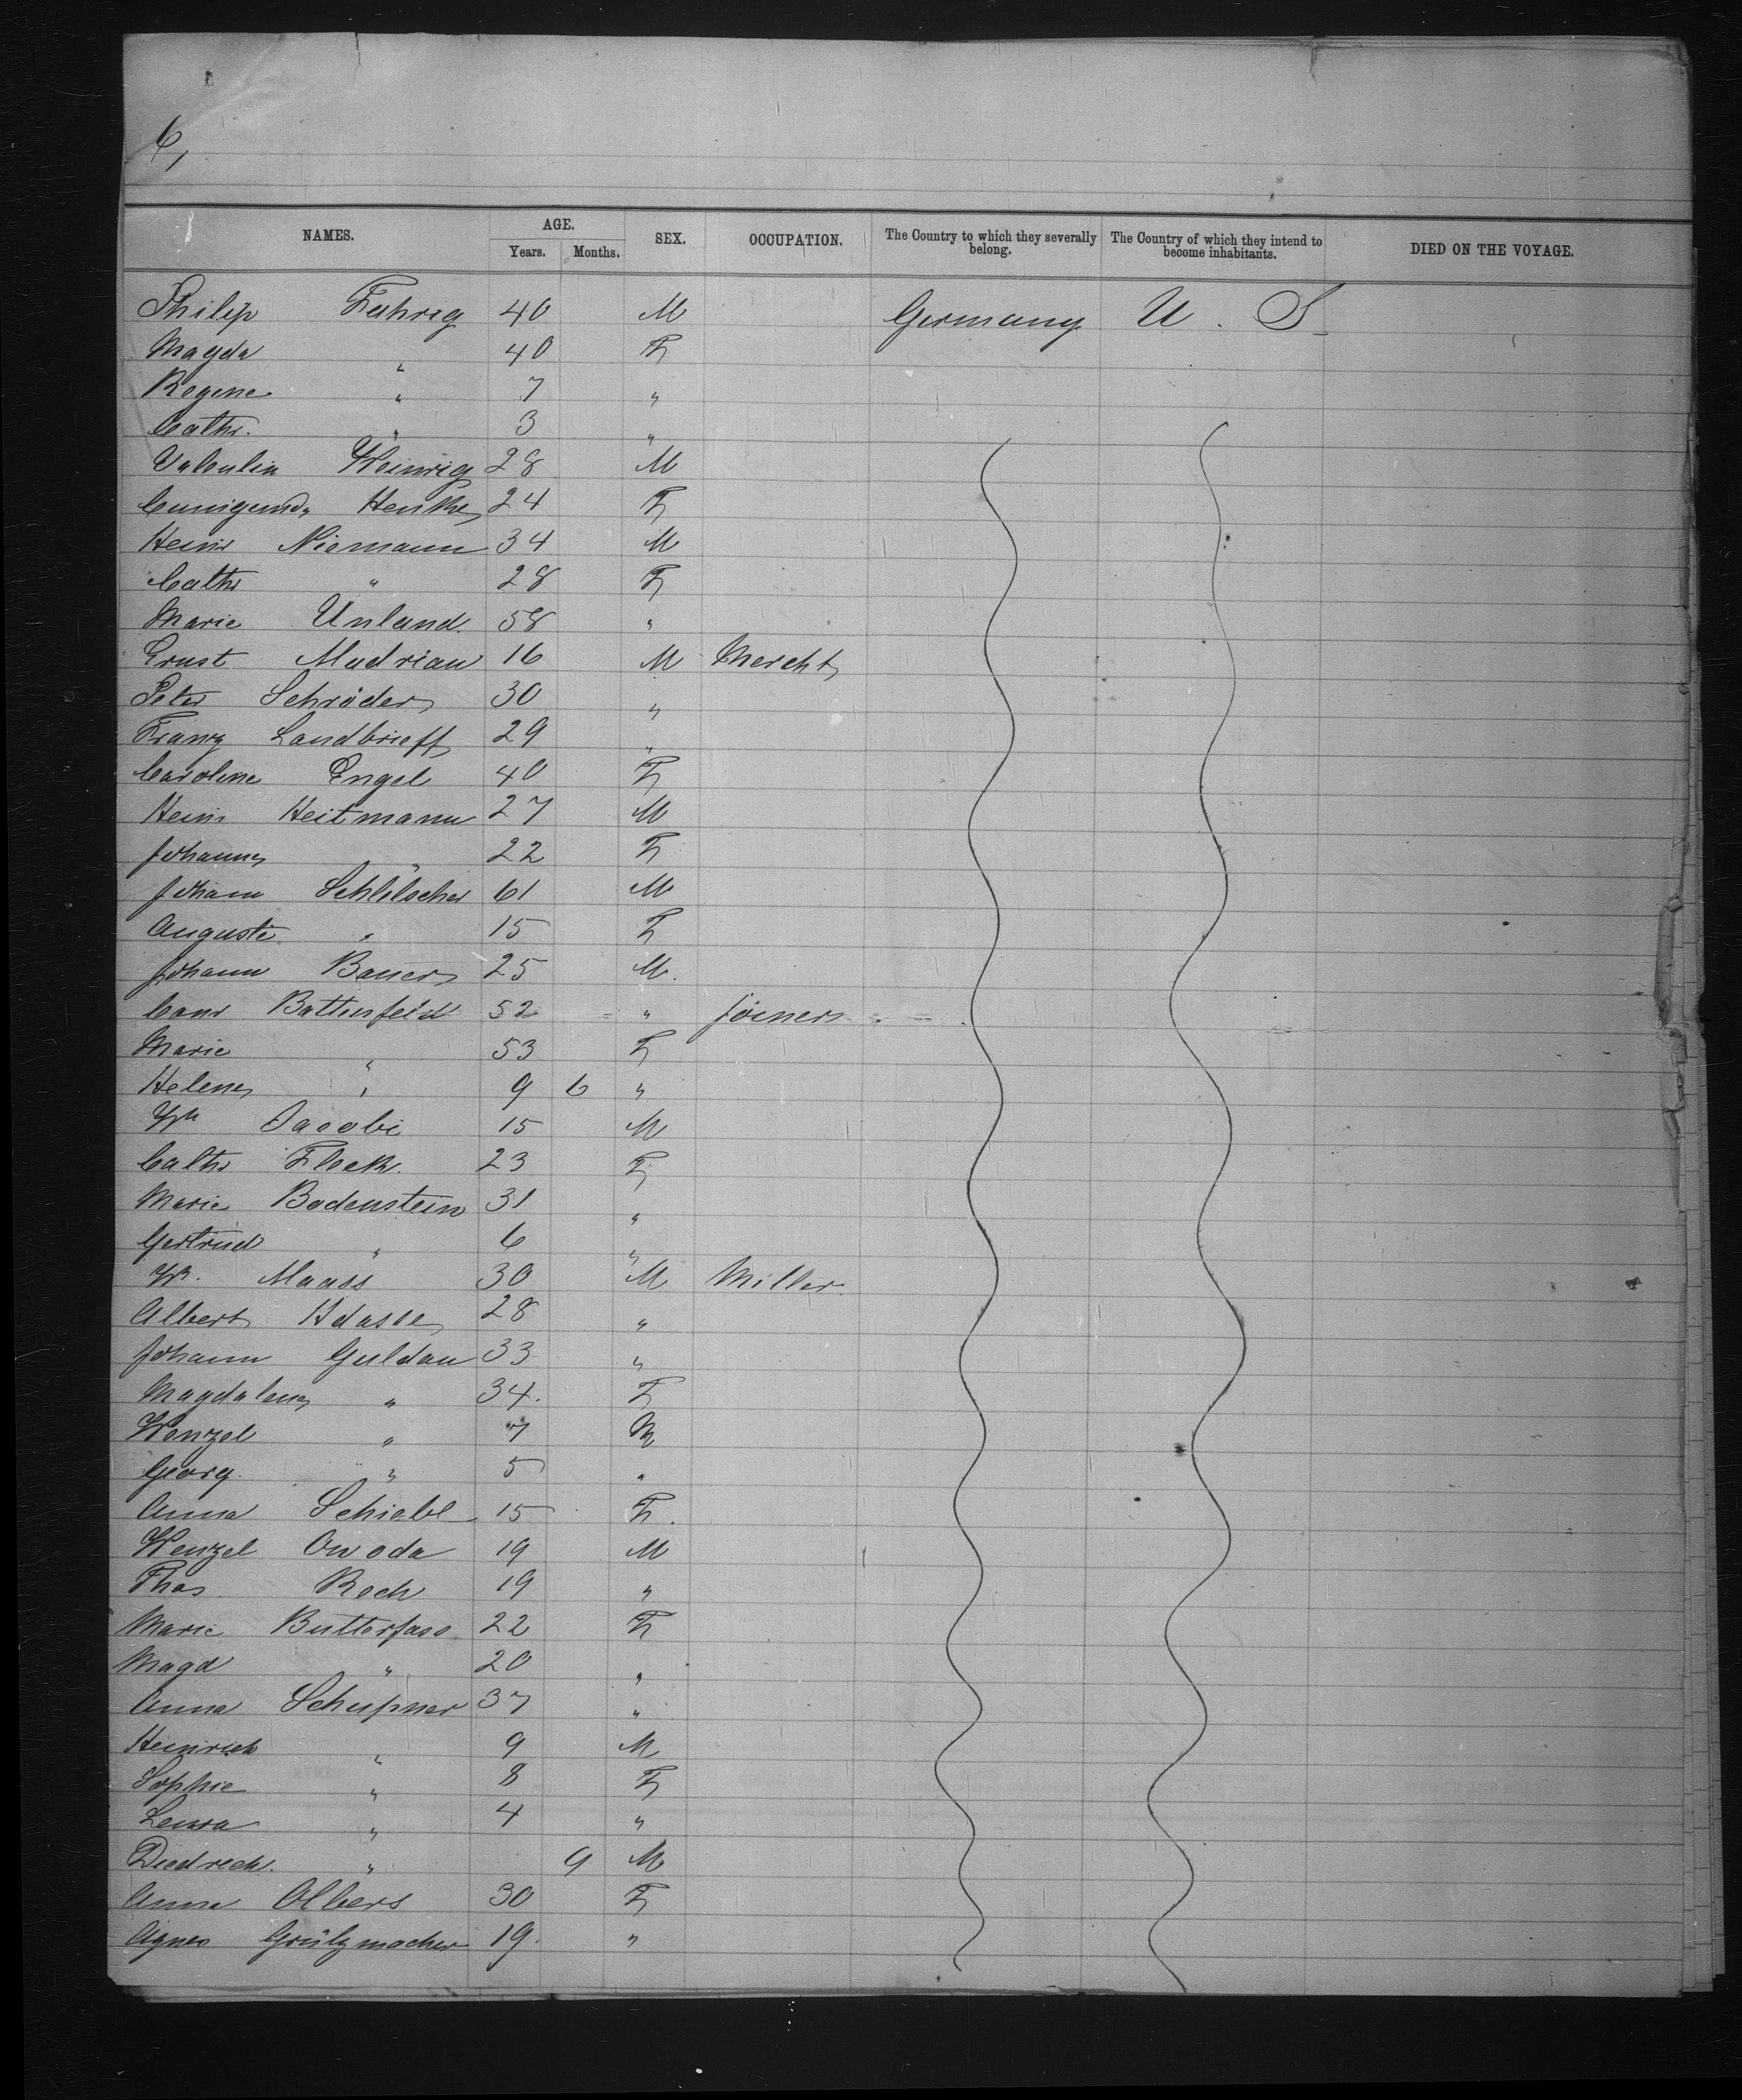 6,
NAMES. AGE. Years. Months. SEX. OCCUPATION. The Country to which they severally belong. The Country of which they intend to become inhabitants. DIED ON THE VOYAGE.
Philip Fuhrig 40 M Germany U. S.
Magda " 40 F
Regine " 7 "
Cathr. " 3 "
Valentin Weinrig 28 M
Cunigunda Henke 24 F
Heinr Niemann 34 M
Cathr " 28 F
Marie Unland. 58 "
Ernst Madrian 16 M Mercht
Peter Schröder 30 "
Franz Landbrieff 29 "
Caroline Engel 40 F
Heinr Heitmann 27 M
Johanne " 22 F
Johann 61 M
Auguste " 15 F
Johann Bauer 25 M.
Conr Battenfeld 52 " joiner
Marie " 53 F
Helene " 9 6 "
Wm Jacobi 15 M
Cathr Flock. 23 F
Marie Bodenstein 31 "
Gertrud " 6 "
Wm. Maass 30 M Miller.
Albert Haase 28 "
Johann Guldan 33 "
Magdalena " 34. F
Wenzel " 7 M
Georg. " 5 "
Anna Schiebl 15 F.
Wenzel Owoda 19 M
Thos Roch 19 "
Marie Butterfass 22 F
Magd " 20 "
Anna Schupner 37 "
Heinrich " 9 M
Sophie " 8 F
Leura " 4 "
Diedrich. " 9 M
Anna Olbers 30 F
Agnes Grützmacher 19. "